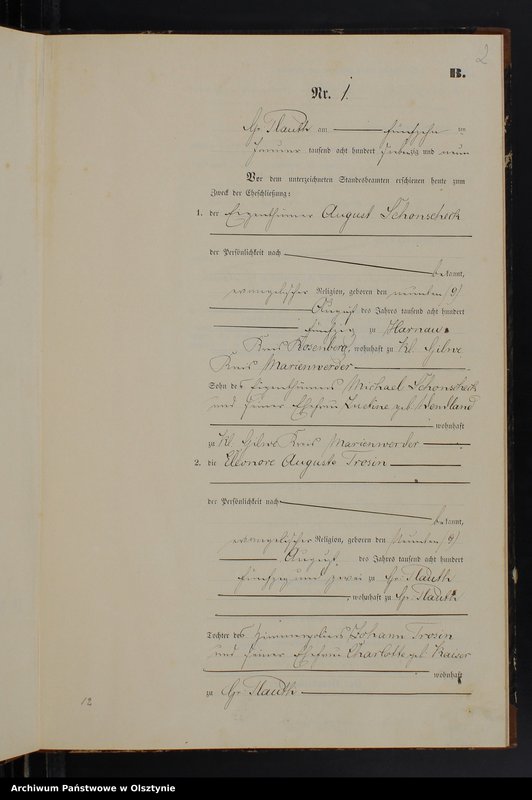 2
B.
Nr. 1.
Gr. Plauth am fünfzehn ten
Januar tausend acht hundert siebenzig und neun
Vor dem unterzeichneten Standesbeamten erschienen heute zum
Zweck der Eheschließung:
1. der Eigenthümer August Schonscheck
der Persönlichkeit nach
bekannt,
evangelischer Religion, geboren den neunten (9)
August des Jahres tausend acht hundert
fünfzig zu Harnau
Kreis Rosenberg, wohnhaft zu Kl. Gilwe
Kreis Marienwerder
Sohn des Eigenthümers Michael Schonscheck
und seiner Ehefrau geb. Wendland
wohnhaft
zu Kl. Gilwe Kreis Marienwerder
2. die Eleonore Auguste Trosin
der Persönlichkeit nach
bekannt,
evangelischer Religion, geboren den neunten (9)
August des Jahres tausend acht hundert
fünfzig und zwei zu Gr. Plauth
, wohnhaft zu Gr. Plauth
Tochter des Johann Trosin
und seiner Ehefrau Charlotte geb. Kaiser
wohnhaft
zu Gr. Plauth
12
Archiwum Państwowe w Olsztynie